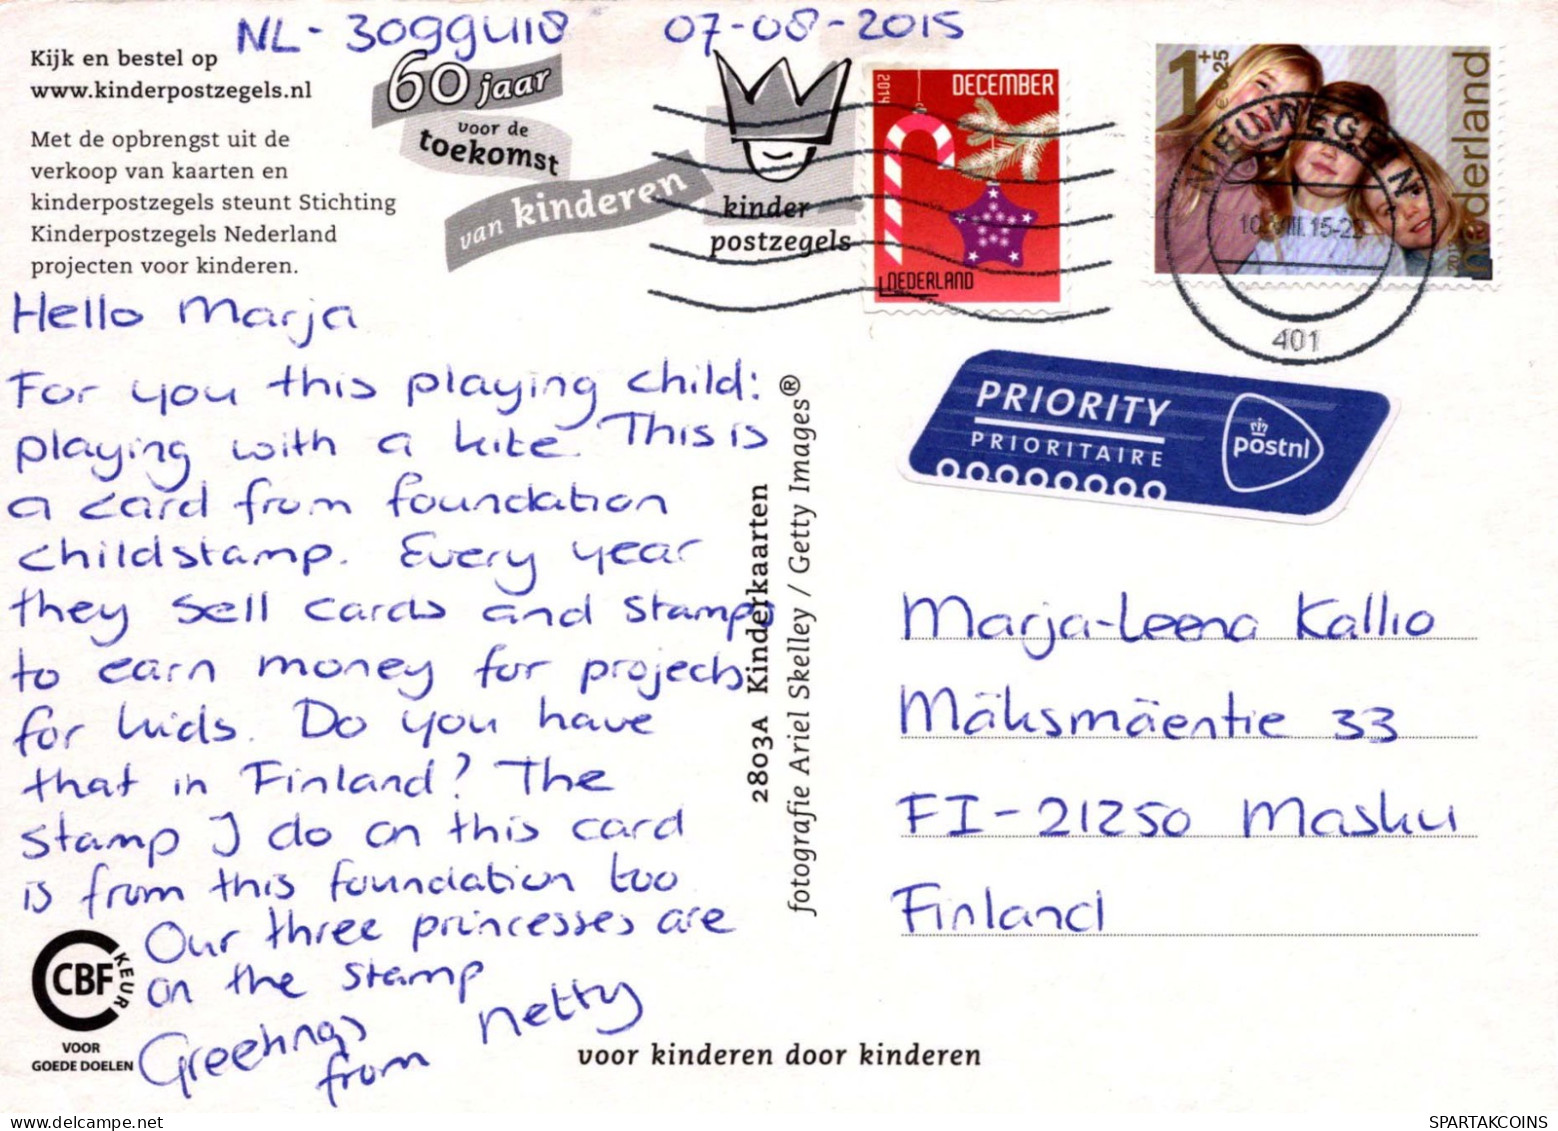 NL-3099418 07-08-2015
Kijk en bestel op
www.kinderpostzegels.nl
Met de opbrengst uit de
verkoop van kaarten en
kinderpostzegels steunt Stichting
Kinderpostzegels Nederland
projecten voor kinderen.
60 jaar
voor de
toekomst
van kinderen
kinder
postzegels
2014
DECEMBER
NEDERLAND
1+
€0,25
Nederland
2013
NIEUWEGEIN
15-22
401
PRIORITY
PRIORITAIRE
postnl
Hello Marja
For you this playing child:
playing with a kite. This is
a card from foundation
childstamp. Every year
they sell cards and stamps
to earn money for projects
for kids. Do you have
that in Finland? The
stamp I do on this card
is from this foundation too
Our three princesses are
on the stamp
Greetings
from Netty
2803A Kinderkaarten
fotografie Ariel Skelley / Getty Images®
Marja-Leena Kallio
Mäksmäentie 33
FI-21250 Masku
Finland
CBF
KEUR
VOOR
GOEDE DOELEN
voor kinderen door kinderen
SPARTAKCOINS